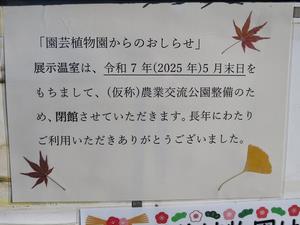 「園芸植物園からのおしらせ」
展示温室は、令和7年(2025年)5月末日を
もちまして、(仮称)農業交流公園整備のた
め、閉館させていただきます。長年にわたり
ご利用いただきありがとうございました。